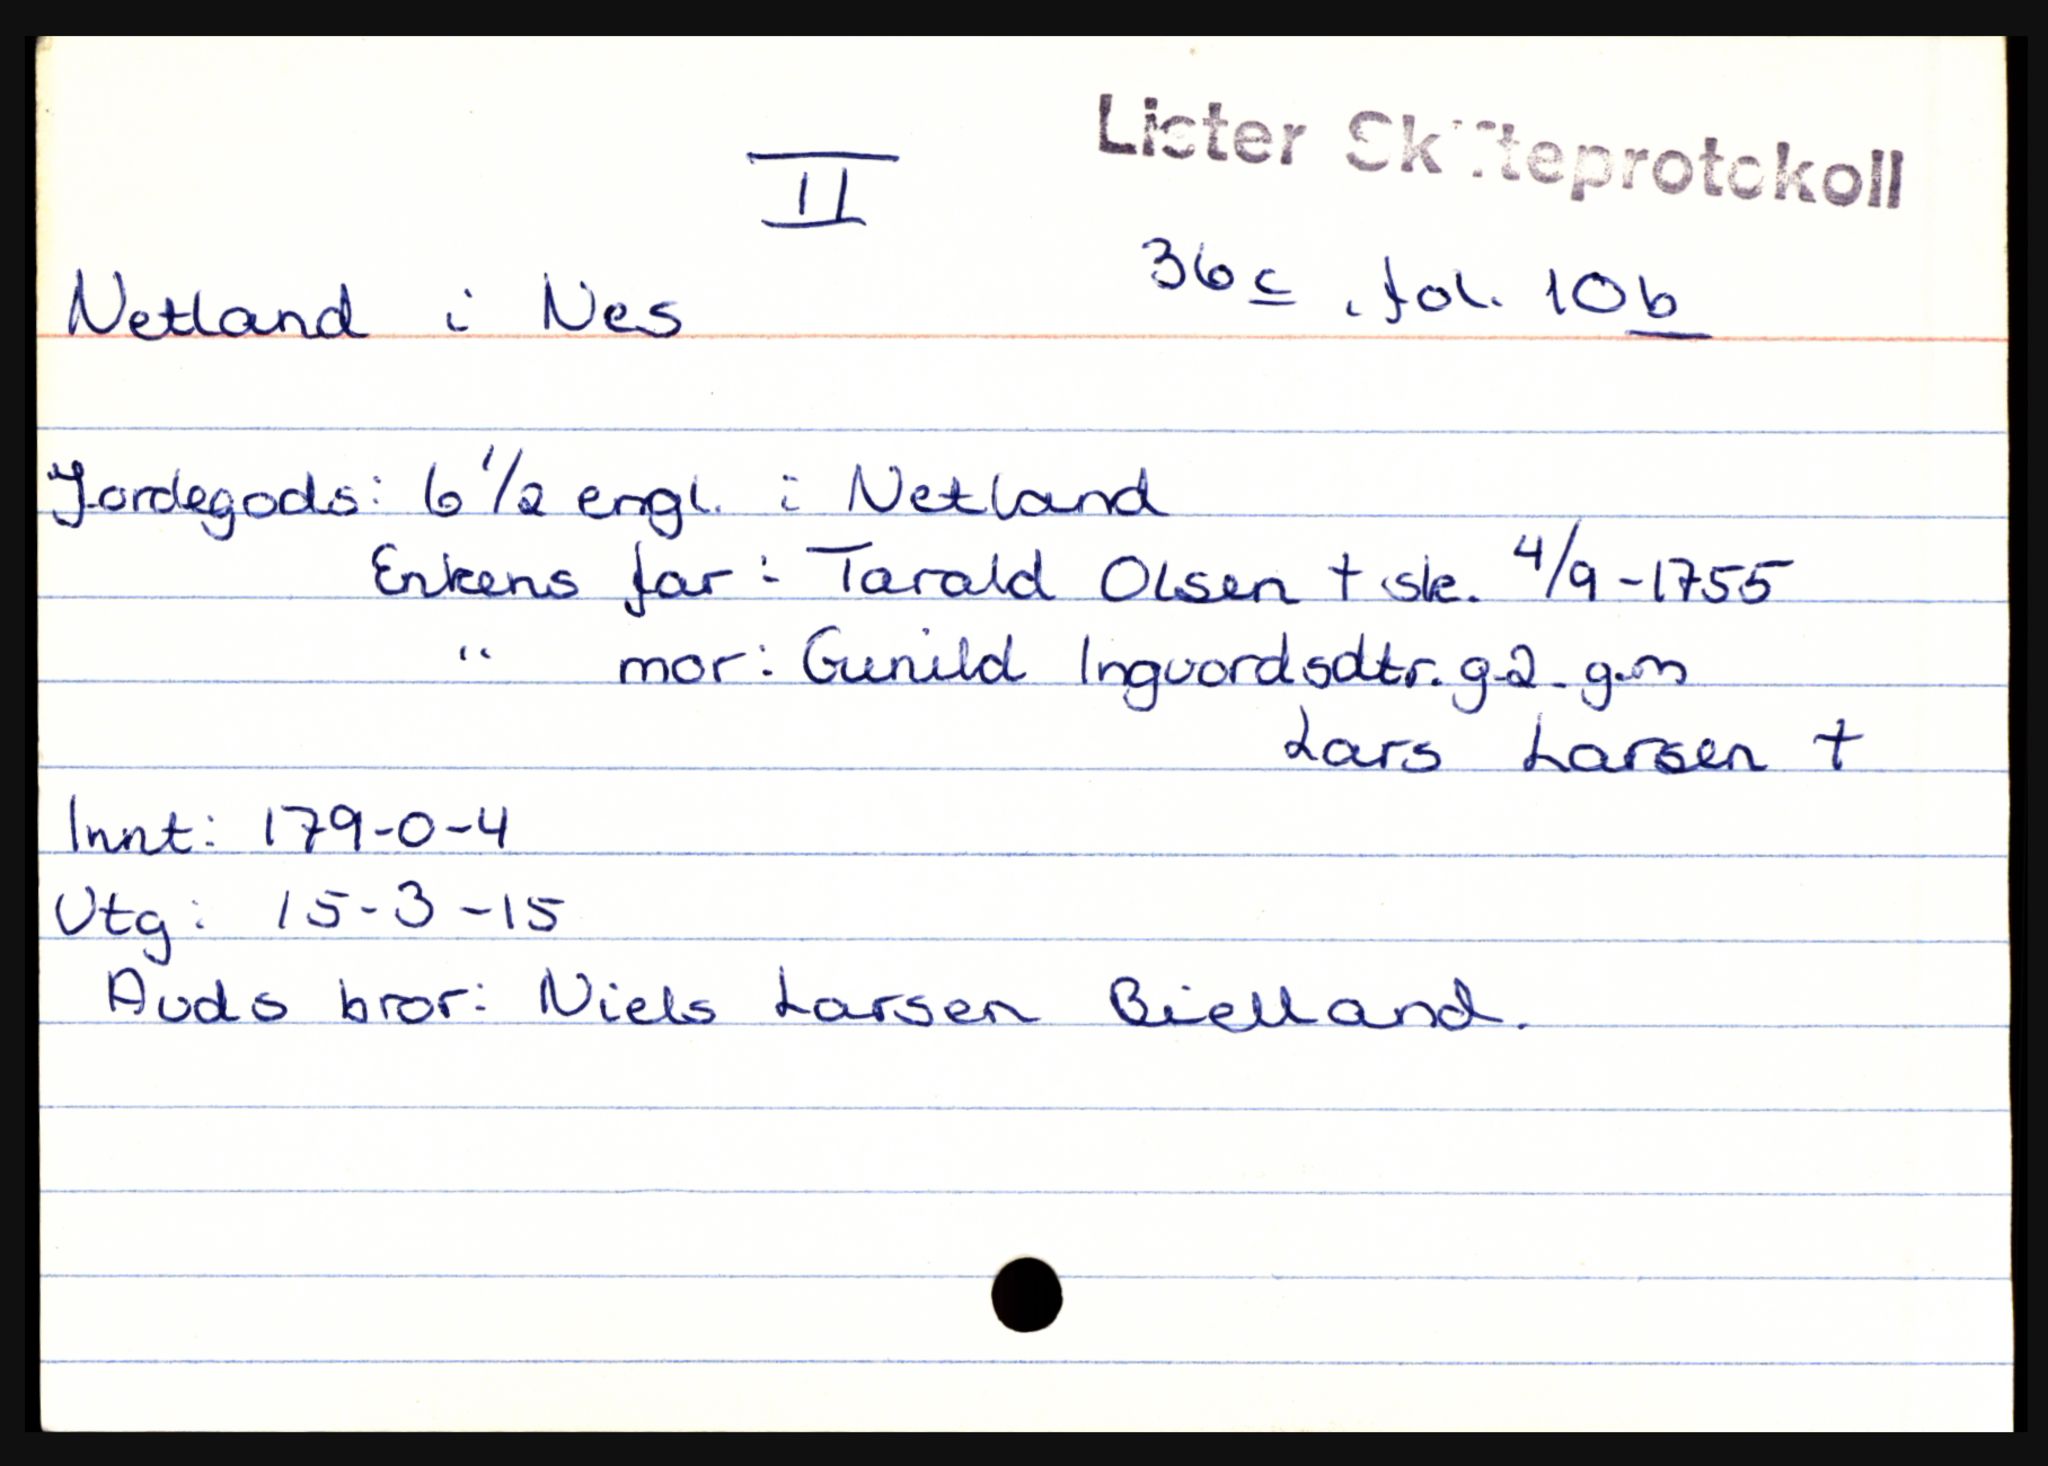 Lister Skifteprotokoll
II
36c, fol. 10b
Netland i Nes
Jordegods: 6 1/2 engl. i Netland
Enkens far: Tarald Olsen † sk. 4/9-1755
" mor: Gunild Ingvordsdtr. g.2. g.m
Lars Larsen †
Innt: 179-0-4
Utg: 15-3-15
Avds bror: Niels Larsen Bielland.